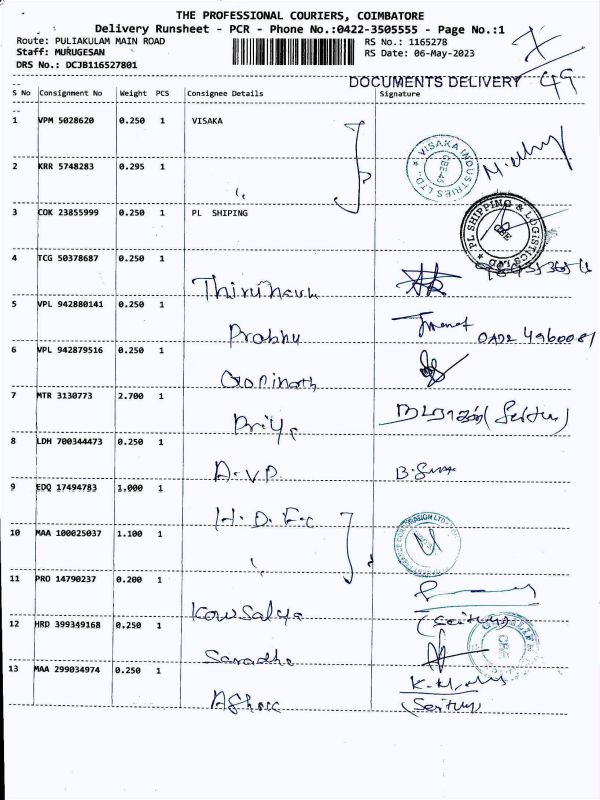 THE PROFESSIONAL COURIERS, COIMBATORE
Delivery Runsheet - PCR - Phone No.:0422-3505555 - Page No.:1
Route: PULIAKULAM MAIN ROAD RS No.: 1165278
Staff: MURUGESAN RS Date: 06-May-2023
DRS No.: DCJB116527801
DOCUMENTS DELIVERY 49
S No Consignment No Weight PCS Consignee Details Signature
1 VPM 5028620 0.250 1 VISAKA
VISAKA INDUSTRIES LTD. CBE-45
2 KRR 5748283 0.295 1
3 COK 23855999 0.250 1 PL SHIPING
PL SHIPPING & LOGISTICS CBE
4 TCG 50378687 0.250 1
5 VPL 942880141 0.250 1
Prabhu 0422 4960081
6 VPL 942879516 0.250 1
Gopinath
7 MTR 3130773 2.700 1
Priya
8 LDH 700344473 0.250 1
A.V.P
9 EDQ 17494783 1.000 1
H.D.F.C
10 MAA 100025037 1.100 1
11 PRO 14790237 0.200 1
Kowsalya
12 HRD 399349168 0.250 1
Saradha
13 MAA 299034974 0.250 1
Ashok